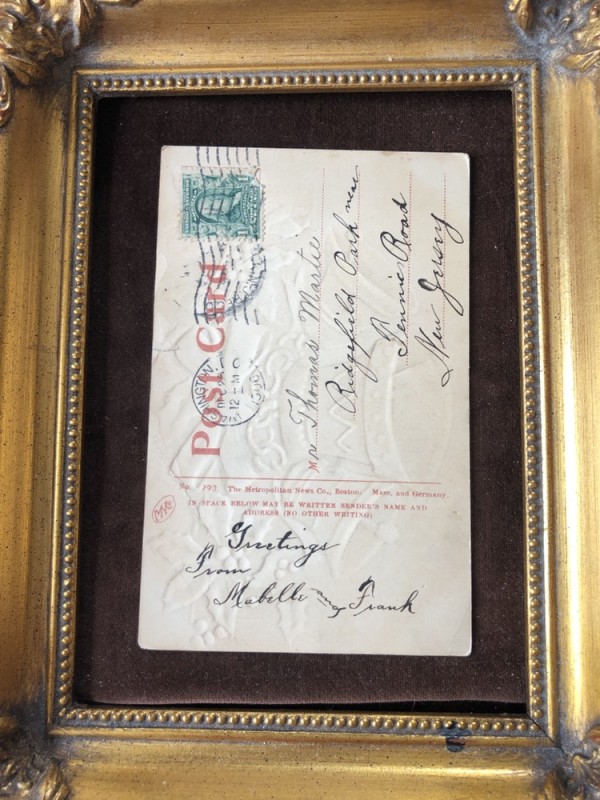 Post Card
Mr Thomas Martie
Ridgefield Park near
Road
New Jersey
No. 793. The Metropolitan News Co., Boston. Mass, and Germany.
IN SPACE BELOW MAY BE WRITTER SENDER'S NAME AND
ADDRESS (NO OTHER WRITING)
Greetings
From
Mabelle and Frank